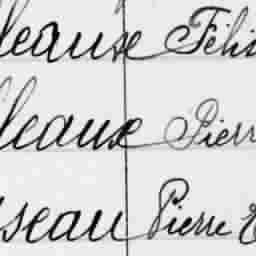 leaux Féli
leaux Pierr
sseau Pierre E